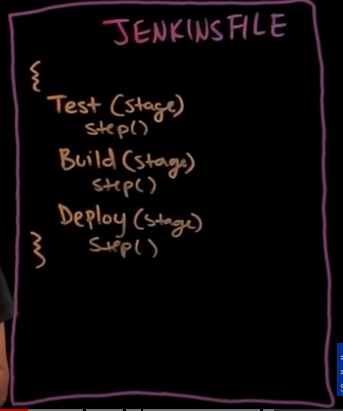 JENKINSFILE
{
Test (stage)
step()
Build (stage)
step()
Deploy (stage)
step()
}